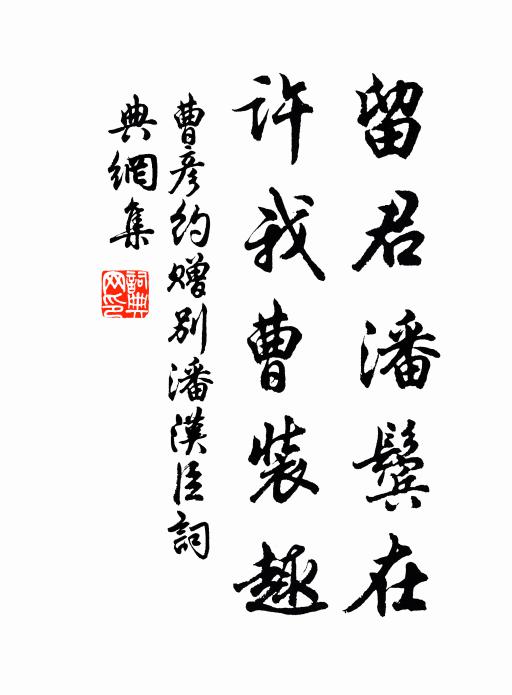 留君潘鬢在
許我曹裝趣
曹彥約贈別潘漢臣詞
典網集
詞典網印